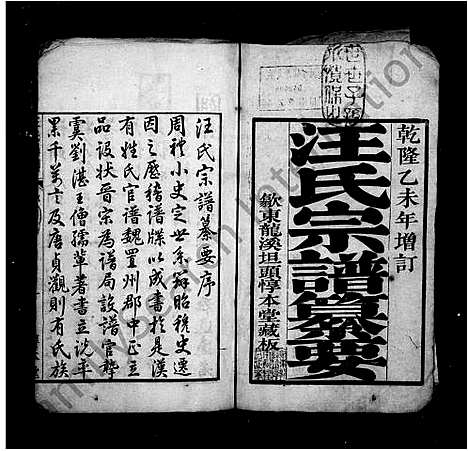 乾隆乙未年增訂
汪氏宗譜纂要
歙東龍溪坦頭惇本堂藏板
汪氏宗譜纂要序
周禮小史定世系辨昭穆史遷
因之歷稽譜牒以成書於是漢
有姓氏官譜魏置州郡中正立
品設狀晉宗為譜局設譜官摯
虞劉湛王僧孺輩著書立說卒
累千萬言及唐貞觀則有氏族